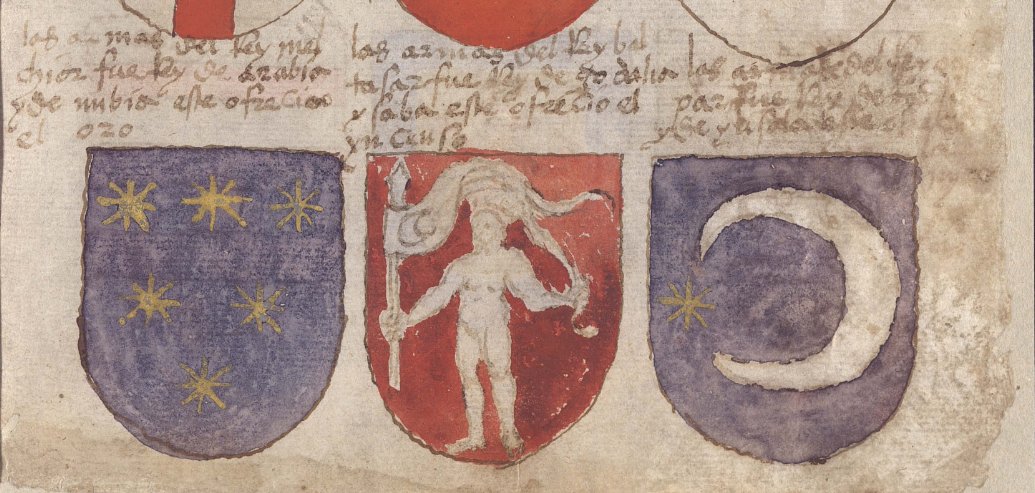 las armas del Rey mel
chior fue Rey de arabia
y de nubia este ofrecio
el oro
las armas del Rey bal
tasar fue Rey de godalia
y saba este ofrecio el
yncenso
las armas del Rey
par fue Rey de
y de este el